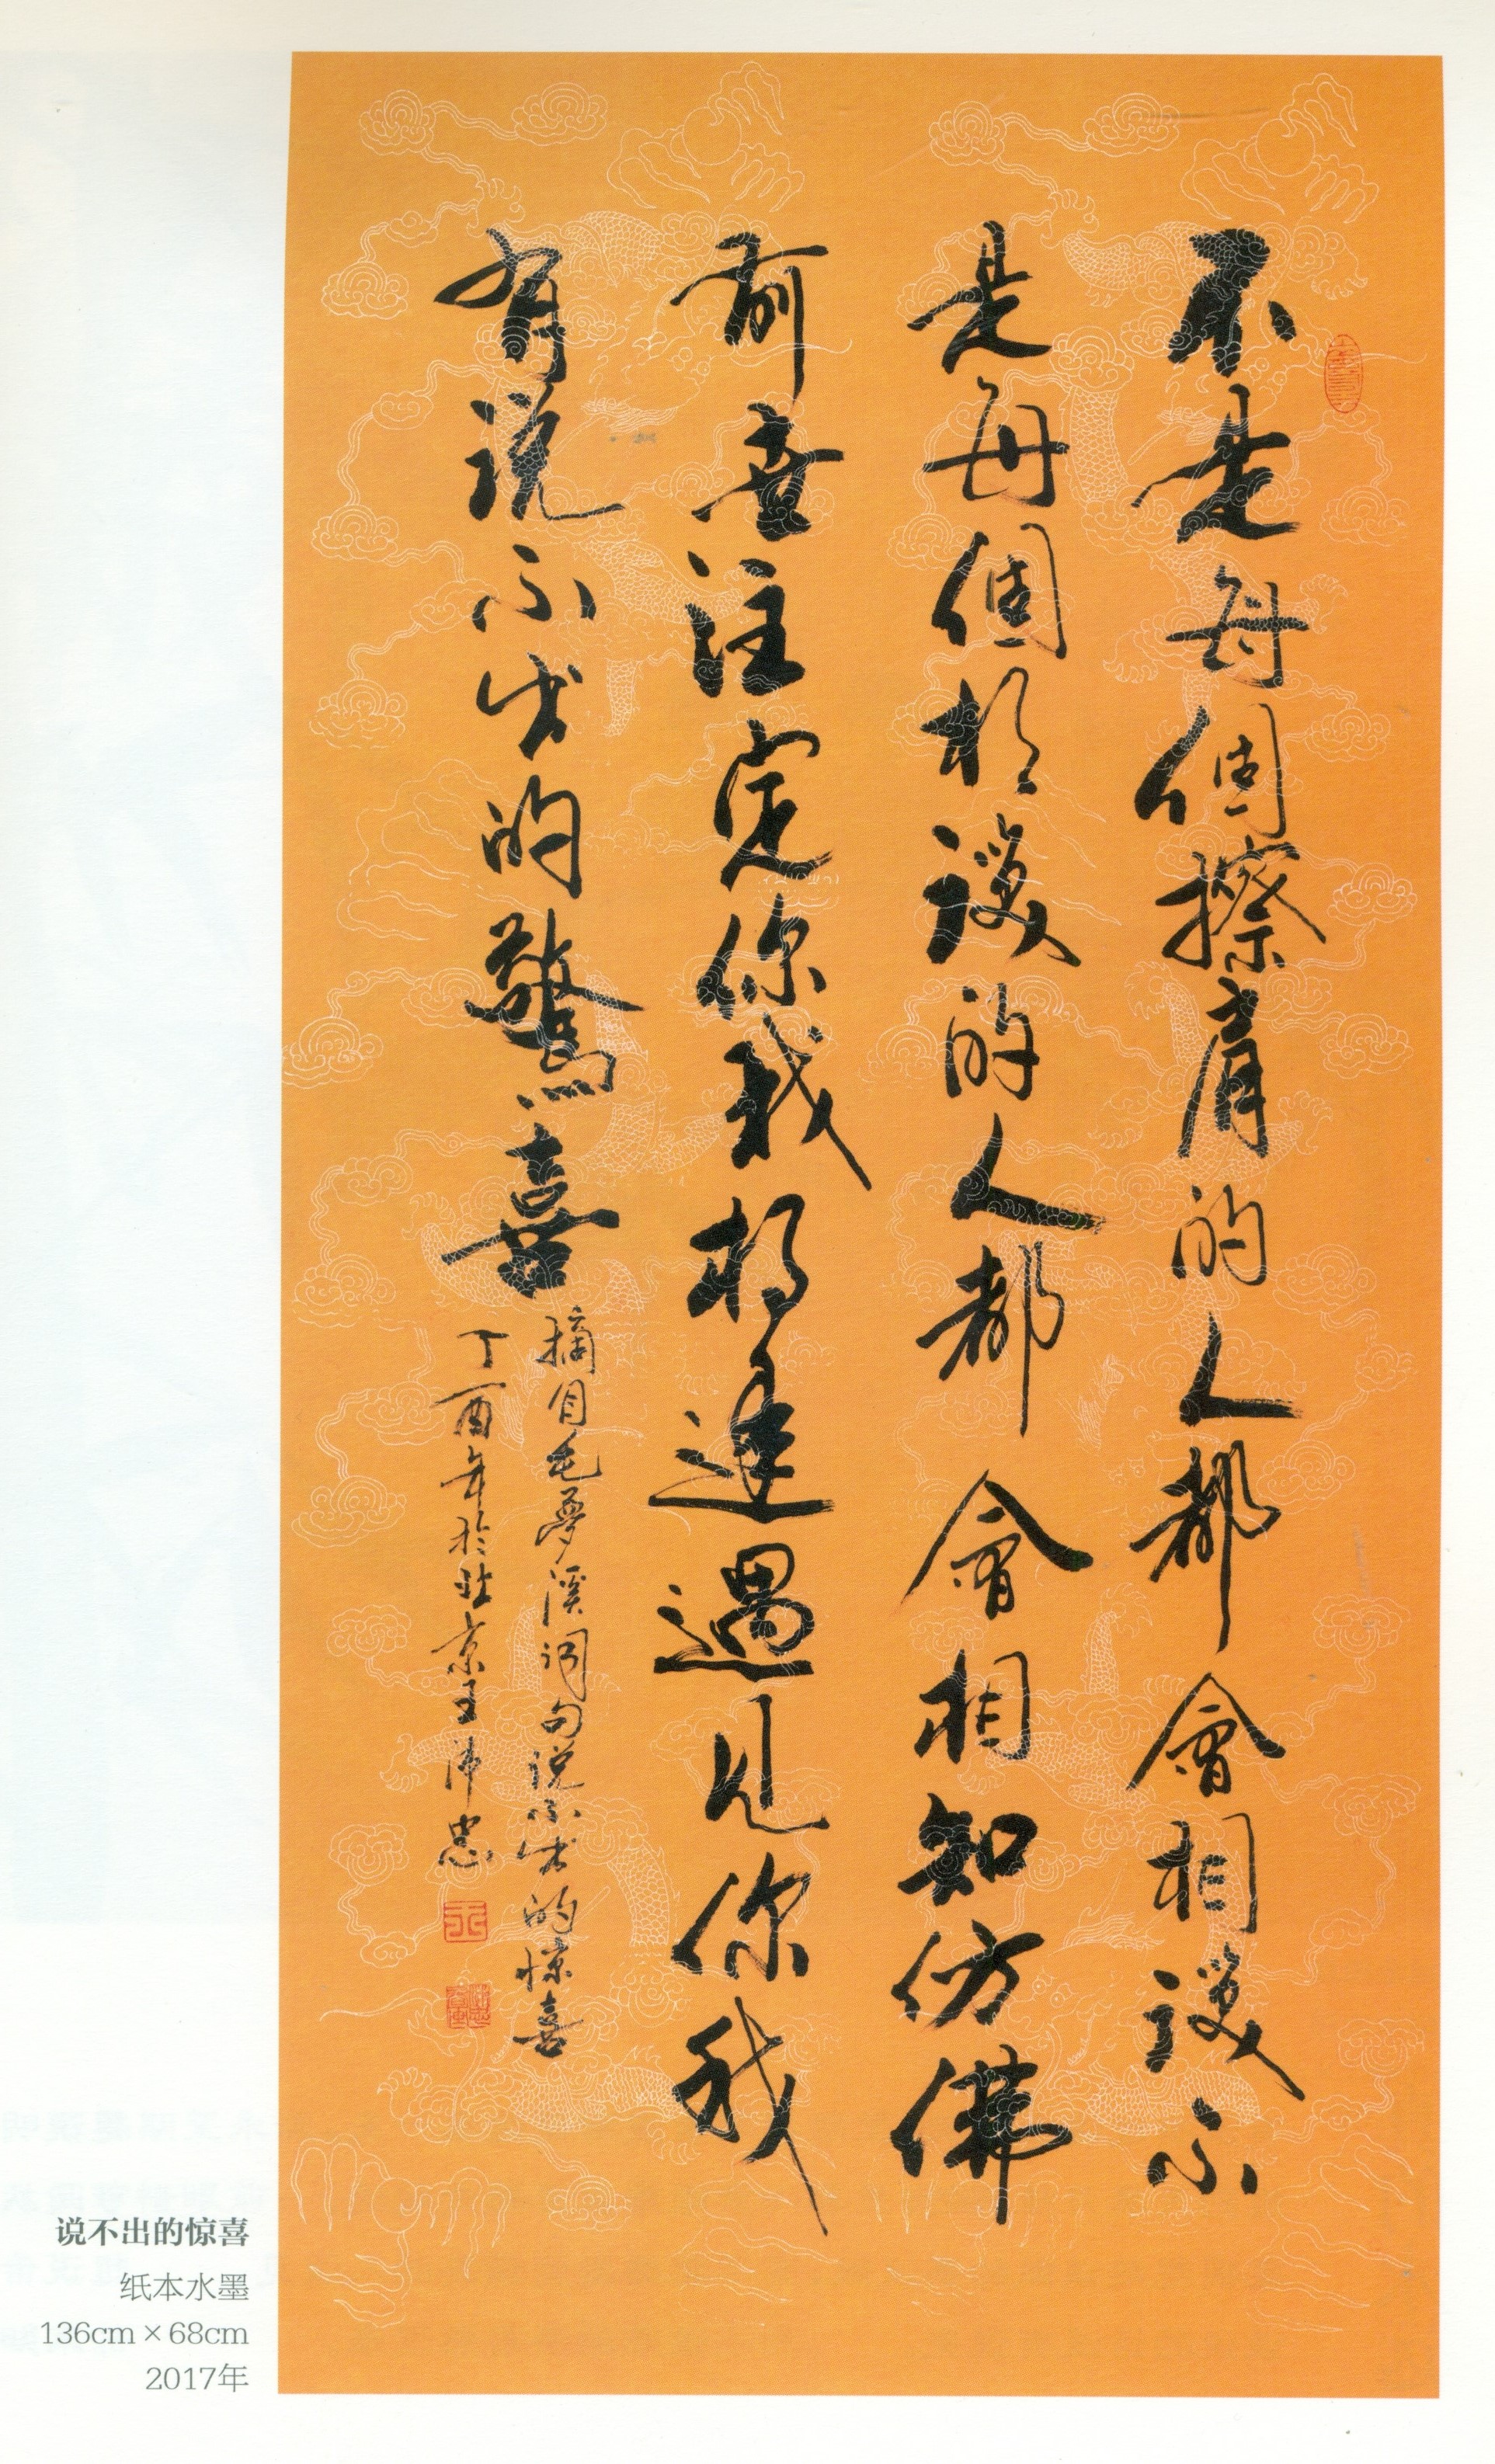 不是每個擦肩的人都會相識不
是每個相識的人都會相知仿佛
前世注定你我相逢遇見你我
有説不出的驚喜
摘自毛夢溪詞句説不出的惊喜
丁酉年於北京王沛忠
说不出的惊喜
纸本水墨
136cm×68cm
2017年